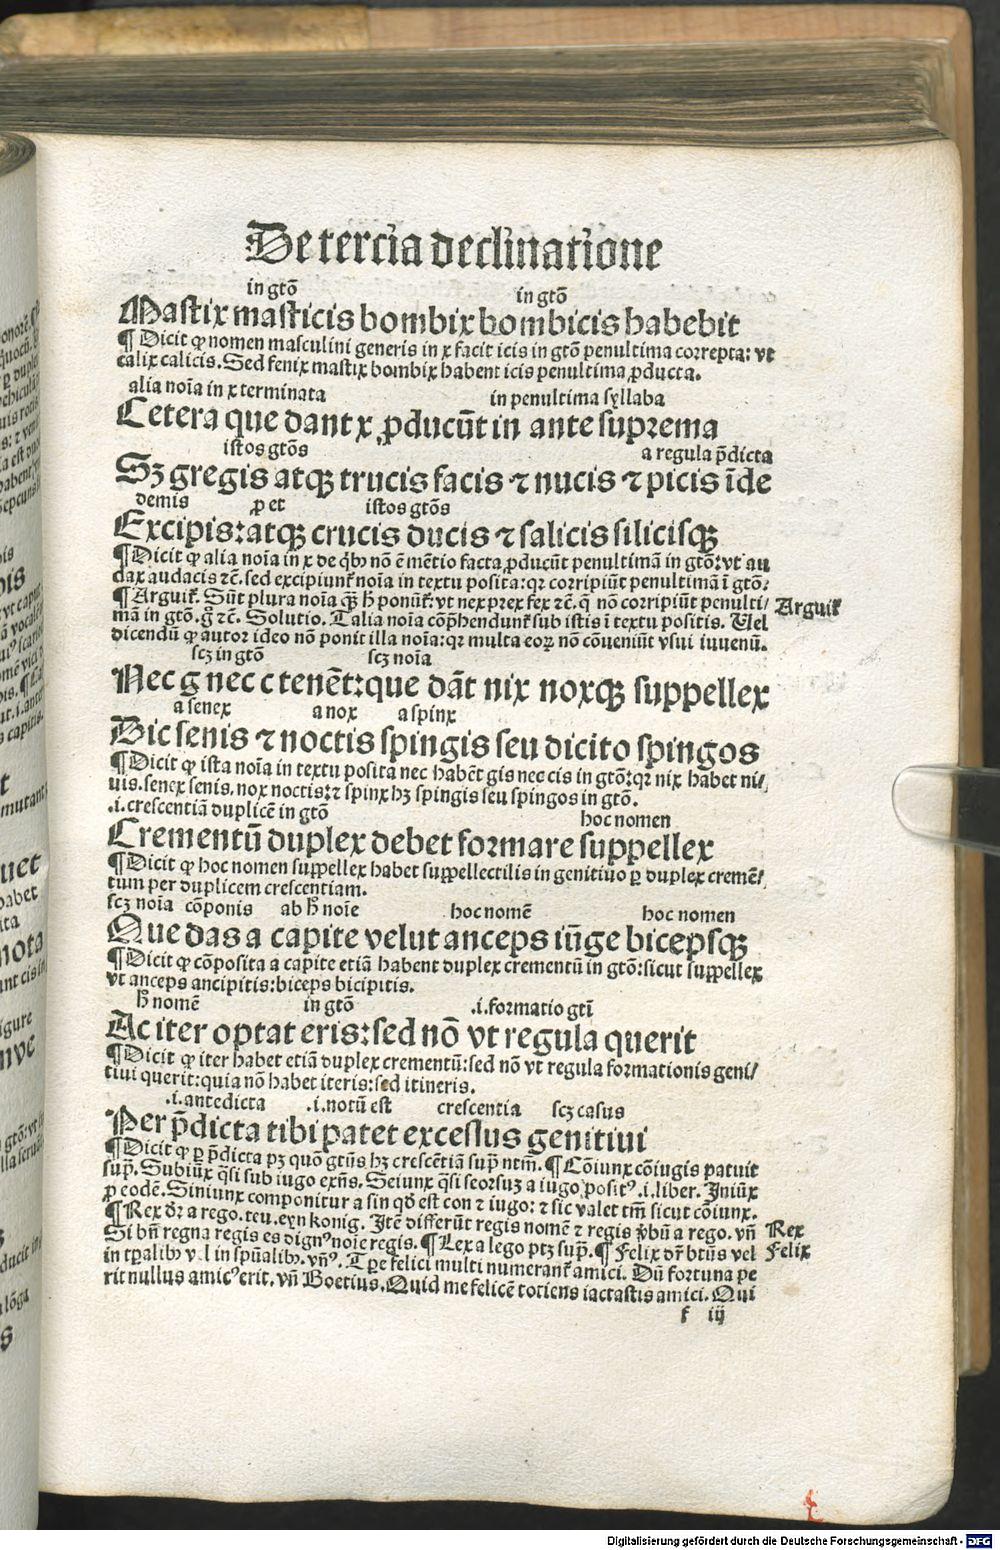 De tercia declinatione
in gtō in gtō
Mastix masticis bombix bombicis habebit
¶ Dicit ꝙ nomen masculini generis in x facit icis in gtō penultima correpta: vt
calix calicis. Sed fenix mastix bombix habent icis penultima ꝓducta.
alia noīa in x terminata in penultima syllaba
Cetera que dant x ꝓducūt in ante suprema
istos gtōs a regula p̄dicta
Sꝫ gregis atqꝫ trucis facis ⁊ nucis ⁊ picis īde
demis ꝓ et istos gtōs
Excipis: atqꝫ crucis ducis ⁊ salicis silicisqꝫ
¶ Dicit ꝙ alia noīa in x de qͥbꝰ nō ē mētio facta ꝓducūt penultimā in gtō: vt au
dax audacis ⁊c̄. sed excipiunt᷑ noīa in textu posita: qꝛ corripiūt penultimā ī gtō:
¶ Arguit᷑. Sūt plura noīa qꝫ h̄ ponūt᷑: vt nex prex fex ⁊c̄. q̄ nō corripiūt penulti/
Arguit᷑
mā in gtō. g̊ ⁊c̄. Solutio. Talia noīa cōp̄hendunt᷑ sub istis ī textu positis. Uel
dicendū ꝙ autor ideo nō ponit illa noīa: qꝛ multa eoꝝ nō cōueniūt vsui iuuenū.
scꝫ in gtō scꝫ noīa
Nec g nec c tenēt: que dāt nix noxqꝫ suppellex
a senex a nox a spinx
Dic senis ⁊ noctis spingis seu dicito spingos
¶ Dicit ꝙ ista noīa in textu posita nec habēt gis nec cis in gtō: qꝛ nix habet ni/
uis. senex senis. nox noctis: ⁊ spinx hꝫ spingis seu spingos in gtō.
.i. crescentiā duplicē in gtō hoc nomen
Crementū duplex debet formare suppellex
¶ Dicit ꝙ hoc nomen suppellex habet suppellectilis in genitiuo ꝑ duplex cremē/
tum per duplicem crescentiam.
scꝫ noīa cōponis ab h̄ noīe hoc nomē hoc nomen
Que das a capite velut anceps iūge bicepsqꝫ
¶ Dicit ꝙ cōposita a capite etiā habent duplex crementū in gtō: sicut suppellex
vt anceps ancipitis: biceps bicipitis.
h̄ nomē in gtō .i. formatio gtī
Ac iter optat eris: sed nō vt regula querit
¶ Dicit ꝙ iter habet etiā duplex crementū: sed nō vt regula formationis geni/
tiui querit: quia nō habet iteris: sed itineris.
.i. antedicta .i. notū est crescentia scꝫ casus
Per p̄dicta tibi patet excessus genitiui
¶ Dicit ꝙ ꝑ p̄dicta pꝫ quō gtūs hꝫ crescētiā sup̄ ntm̄. ¶ Cōiunx cōiugis patuit
sup̄. Subiūx q̄si sub iugo exn̄s. Seiunx q̄si seorsuꝫ a iugo positꝰ .i. liber. Iniūx
ꝓ eodē. Siniunx componitur a sin qd̄ est con ⁊ iugo: ⁊ sic valet tm̄ sicut cōiunx.
¶ Rex dr̄ a rego. teu. eyn konig. Itē differūt regis nomē ⁊ regis v̄bū a rego. vn̄
Rex
Si bn̄ regna regis es dignꝰ noīe regis. ¶ Lex a lego ptꝫ sup̄. ¶ Felix dr̄ btūs vel
Felix
in tꝑalibꝰ v̓l in spūalibꝰ. vn̄ꝰ. Tꝑe felici multi numerant᷑ amici. Dū fortuna pe
rit nullus amicꝰ erit. vn̄ Boetius. Quid me felicē totiens iactastis amici. Qui
f iij
Digitalisierung gefördert durch die Deutsche Forschungsgemeinschaft - DFG